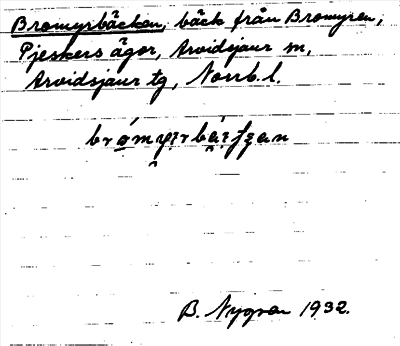 Bromyrbäcken, bäck från Bromyren,
Pjeskers ägor, Arvidsjaur sn,
Arvidsjaur tg, Norrb. l.
B. Nygren 1932.